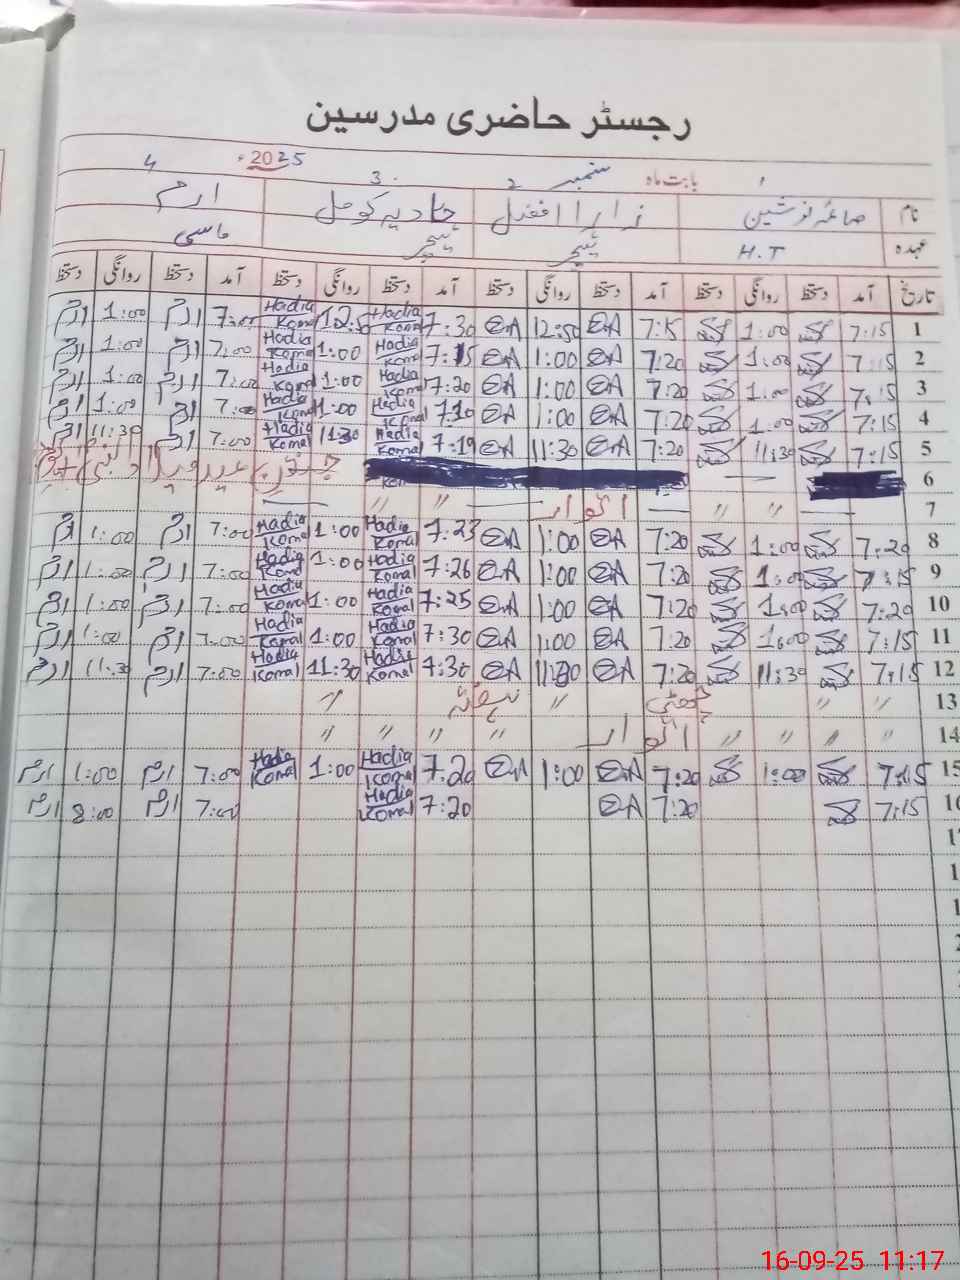 رجسٹر حاضری مدرسین
بابت ماہ ستمبر 2025ء
1 2 3 4
نام صائمہ نوشین زارا افضل حادیہ کومل ارم
عہدہ H.T ٹیچر ٹیچر ماسی
تاریخ آمد دستخط روانگی دستخط آمد دستخط روانگی دستخط آمد دستخط روانگی دستخط آمد دستخط روانگی دستخط
1 7:15 1:00 7:15 12:50 7:30 Hadia Komal Hadia Komal ارم 1:00 ارم
2 7:15 1:00 7:20 1:00 7:15 Hadia Komal 1:00 Hadia Komal 7:00 ارم 1:00 ارم
3 7:15 1:00 7:20 1:00 7:20 Hadia Komal 1:00 Hadia Komal 7:00 ارم 1:00 ارم
4 7:15 1:00 7:20 1:00 7:10 Hadia Komal 1:00 Hadia Komal 7:00 ارم 1:00 ارم
5 7:15 11:30 7:20 11:30 7:19 Hadia Komal 11:30 Hadia Komal 7:00 ارم 11:30 ارم
6 عید میلاد النبی
7 〃 〃 اتوار 〃 〃
8 7:20 1:00 7:20 1:00 7:23 Hadia Komal 1:00 Hadia Komal 7:00 ارم 1:00 ارم
9 7:15 1:00 7:20 1:00 7:26 Hadia Komal 1:00 Hadia Komal 7:00 ارم 1:00 ارم
10 7:20 1:00 7:20 1:00 7:25 Hadia Komal 1:00 Hadia Komal 7:00 ارم 1:00 ارم
11 7:15 1:00 7:20 1:00 7:30 Hadia Komal 1:00 Hadia Komal 7:00 ارم 1:00 ارم
12 7:15 11:30 7:20 11:30 7:30 Hadia Komal 11:30 Hadia Komal 7:00 ارم 11:30 ارم
13 〃 〃 چھٹی 〃 ہفتہ 〃
14 〃 〃 〃 〃 اتوار 〃 〃 〃 〃 〃
15 7:15 1:00 7:20 1:00 7:20 Hadia Komal 1:00 Hadia Komal 7:00 ارم 1:00 ارم
7:15 7:20 7:20 Hadia Komal 7:00 ارم 8:00 ارم
16-09-25 11:17